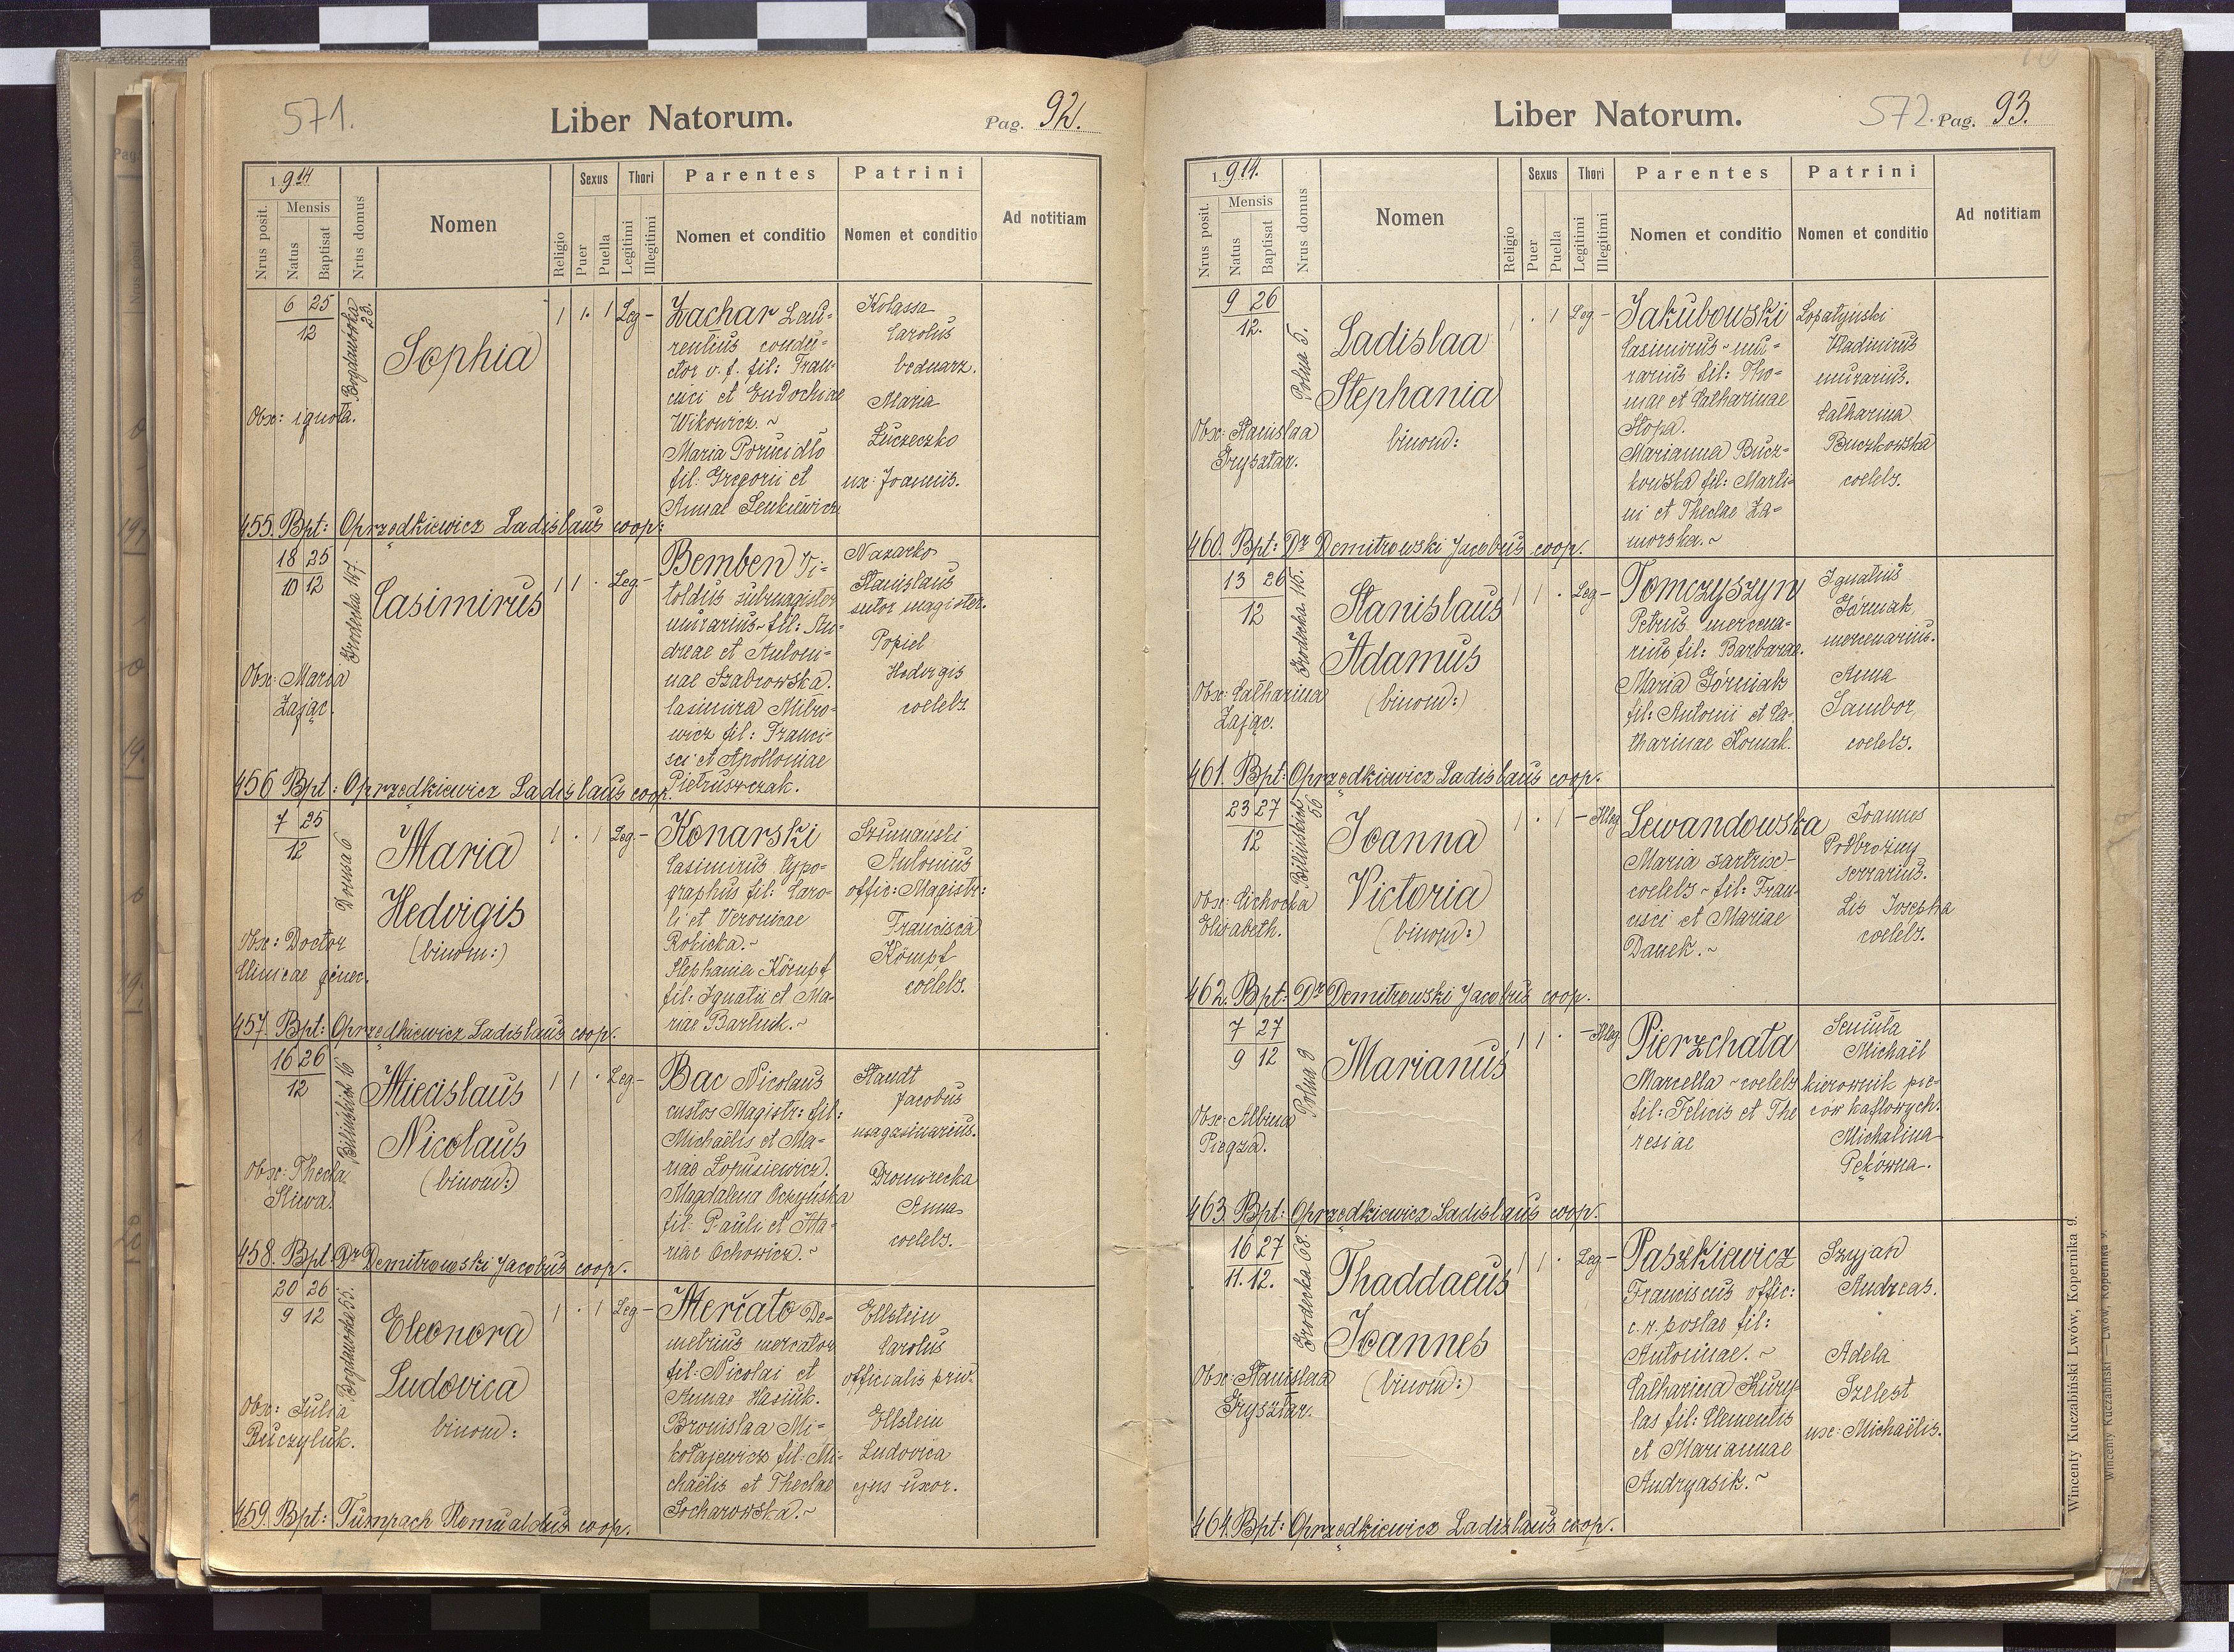 571.
Liber Natorum.
Pag. 92.
1914
Nrus posit.
Mensis
Natus
Baptisat
Nrus domus
Nomen
Religio
Sexus
Puer
Puella
Thori
Legitimi
Illegitimi
Parentes
Nomen et conditio
Patrini
Nomen et conditio
Ad notitiam
6 25
12
Bogdanowska 23.
Sophia
1 1. 1 Leg -
Obx: ignota.
Zachar Lau-
rentius condu-
ctor v. f. fil: Fran-
cisci et Eudochiae
Wikowicz. ~
Maria Porucidło
fil: Gregorii et
Annae Senkiewicz
Kolassa
Carolus
bednarz.
Maria
Łuczeczko
ux: Joannis.
455. Bpt: Oprzędkiewicz Ladislaus coop:
18 25
10 12
Grodecka 147.
Casimirus
1 1 . Leg -
Obx: Maria
Zając.
Bemben Vi-
toldus submagister
murarius ~ fil: An-
dreae et Antoni-
nae Szabrowska.
Casimira Mitro-
wicz fil: Franci-
sci et Apolloniae
Pietruszczak.
Nazarko
Stanislaus
sutor magister.
Popiel
Hedvigis
coelebs.
456 Bpt: Oprzędkiewicz Ladislaus coop.
7 25
12
Dorna 6
Maria
Hedvigis
(binom:)
1 . 1 Leg -
Obx: Doctor
Clinicae ginec.
Konarski
Casimirus typo-
graphus fil: Caro-
li et Veronicae
Robicka. ~
Stephania Kömpf
fil: Ignatii et Ma-
riae Barluik. ~
Szumański
Antonius
offic: Magistr:
Francisca
Kömpf
coelebs.
457. Bpt: Oprzędkiewicz Ladislaus coop.
16 26
12
Bilińskich 16
Miecislaus
Nicolaus
(binom:)
1 1 . Leg -
Obx: Thecla
Sliwa.
Bac Nicolaus
custos Magistr: fil:
Michaëlis et Ma-
riae Łopusiewicz.
Magdalena Oczyńska
fil: Pauli et Ma-
riae Ochowicz. ~
Staudt
Jacobus
magasinarius.
Dromirecka
Anna
coelebs.
458. Bpt: Dr Demitrowski Jacobus coop.
20 26
9 12
Bogdanowka 55.
Eleonora
Ludovica
binom:
1 . 1 Leg -
Obx: Julia
Buczyluk.
Merćato De-
metrius mercator
fil: Nicolai et
Annae Hasiuk.
Bronislaa Mi-
kołajewicz fil: Mi-
chaëlis et Theclae
Socharowska. ~
Ellstein
Carolus
officialis priv.
Ellstein
Ludovica
ejus uxor.
459. Bpt: Tumpach Romualdus coop.
Liber Natorum.
572.
Pag. 93.
1914.
Nrus posit.
Mensis
Natus
Baptisat
Nrus domus
Nomen
Religio
Sexus
Puer
Puella
Thori
Legitimi
Illegitimi
Parentes
Nomen et conditio
Patrini
Nomen et conditio
Ad notitiam
9 26
12.
Polna 5.
Ladislaa
Stephania
binom:
1 . 1 Leg -
Obx: Stanislaa
Grysztar.
Jakubowski
Casimirus ~ mu-
rarius fil: Tho-
mae et Catharinae
Stopa.
Marianna Bucz-
kowska fil: Marti-
ni et Theclae Za-
morska. ~
Łopatyński
Wladimirus
murarius.
Catharina
Buczkowska
coelebs.
460. Bpt: Dr Demitrowski Jacobus coop.
13 26
12
Grodecka 115.
Stanislaus
Adamus
(binom:)
1 1 . Leg -
Obx: Catharina
Zając.
Tomczyszyn
Petrus mercena-
rius fil: Barbarae.
Maria Górniak
fil: Antonii et Ca-
tharinae Kowak.
Ignatius
Górniak
mercenarius.
Anna
Sambor
coelebs.
461. Bpt: Oprzędkiewicz Ladislaus coop.
23 27
12
Bilińskich 56
Joanna
Victoria
(binom:)
1 . 1 - Illeg
Obx: Cichocka
Elisabeth.
Lewandowska
Maria sartrix -
coelebs ~ fil: Fran-
cisci et Mariae
Danek. ~
Joannes
Podbrożny
serrarius.
Lis Josepha
coelebs.
462. Bpt: Dr Demitrowski Jacobus coop.
7 27
9 12
Polna 9
Marianus
1 1 . - Illeg.
Obx: Albina
Piegza.
Pierzchała
Marcella ~ coelebs
fil: Felicis et The
resiae
Seniuta
Michaël
kierownik pie-
ców kaflowych.
Michalina
Pękówna.
463. Bpt: Oprzędkiewicz Ladislaus coop.
16 27
11. 12.
Grodecka 68.
Thaddaeus
Joannes
(binom:)
1 1 . Leg -
Obx: Stanislaa
Grysztar.
Paszkiewicz
Franciscus offic:
c. r. postae fil:
Antoninae. ~
Catharina Kury-
las fil: Clementis
et Mariannae
Andryasik. ~
Szyjan
Andreas.
Adela
Szelest
ux: Michaëlis.
464. Bpt: Oprzędkiewicz Ladislaus coop.
Wincenty Kuczabiński Lwów, Kopernika 9.
Wincenty Kuczabiński — Lwów, Kopernika 9.